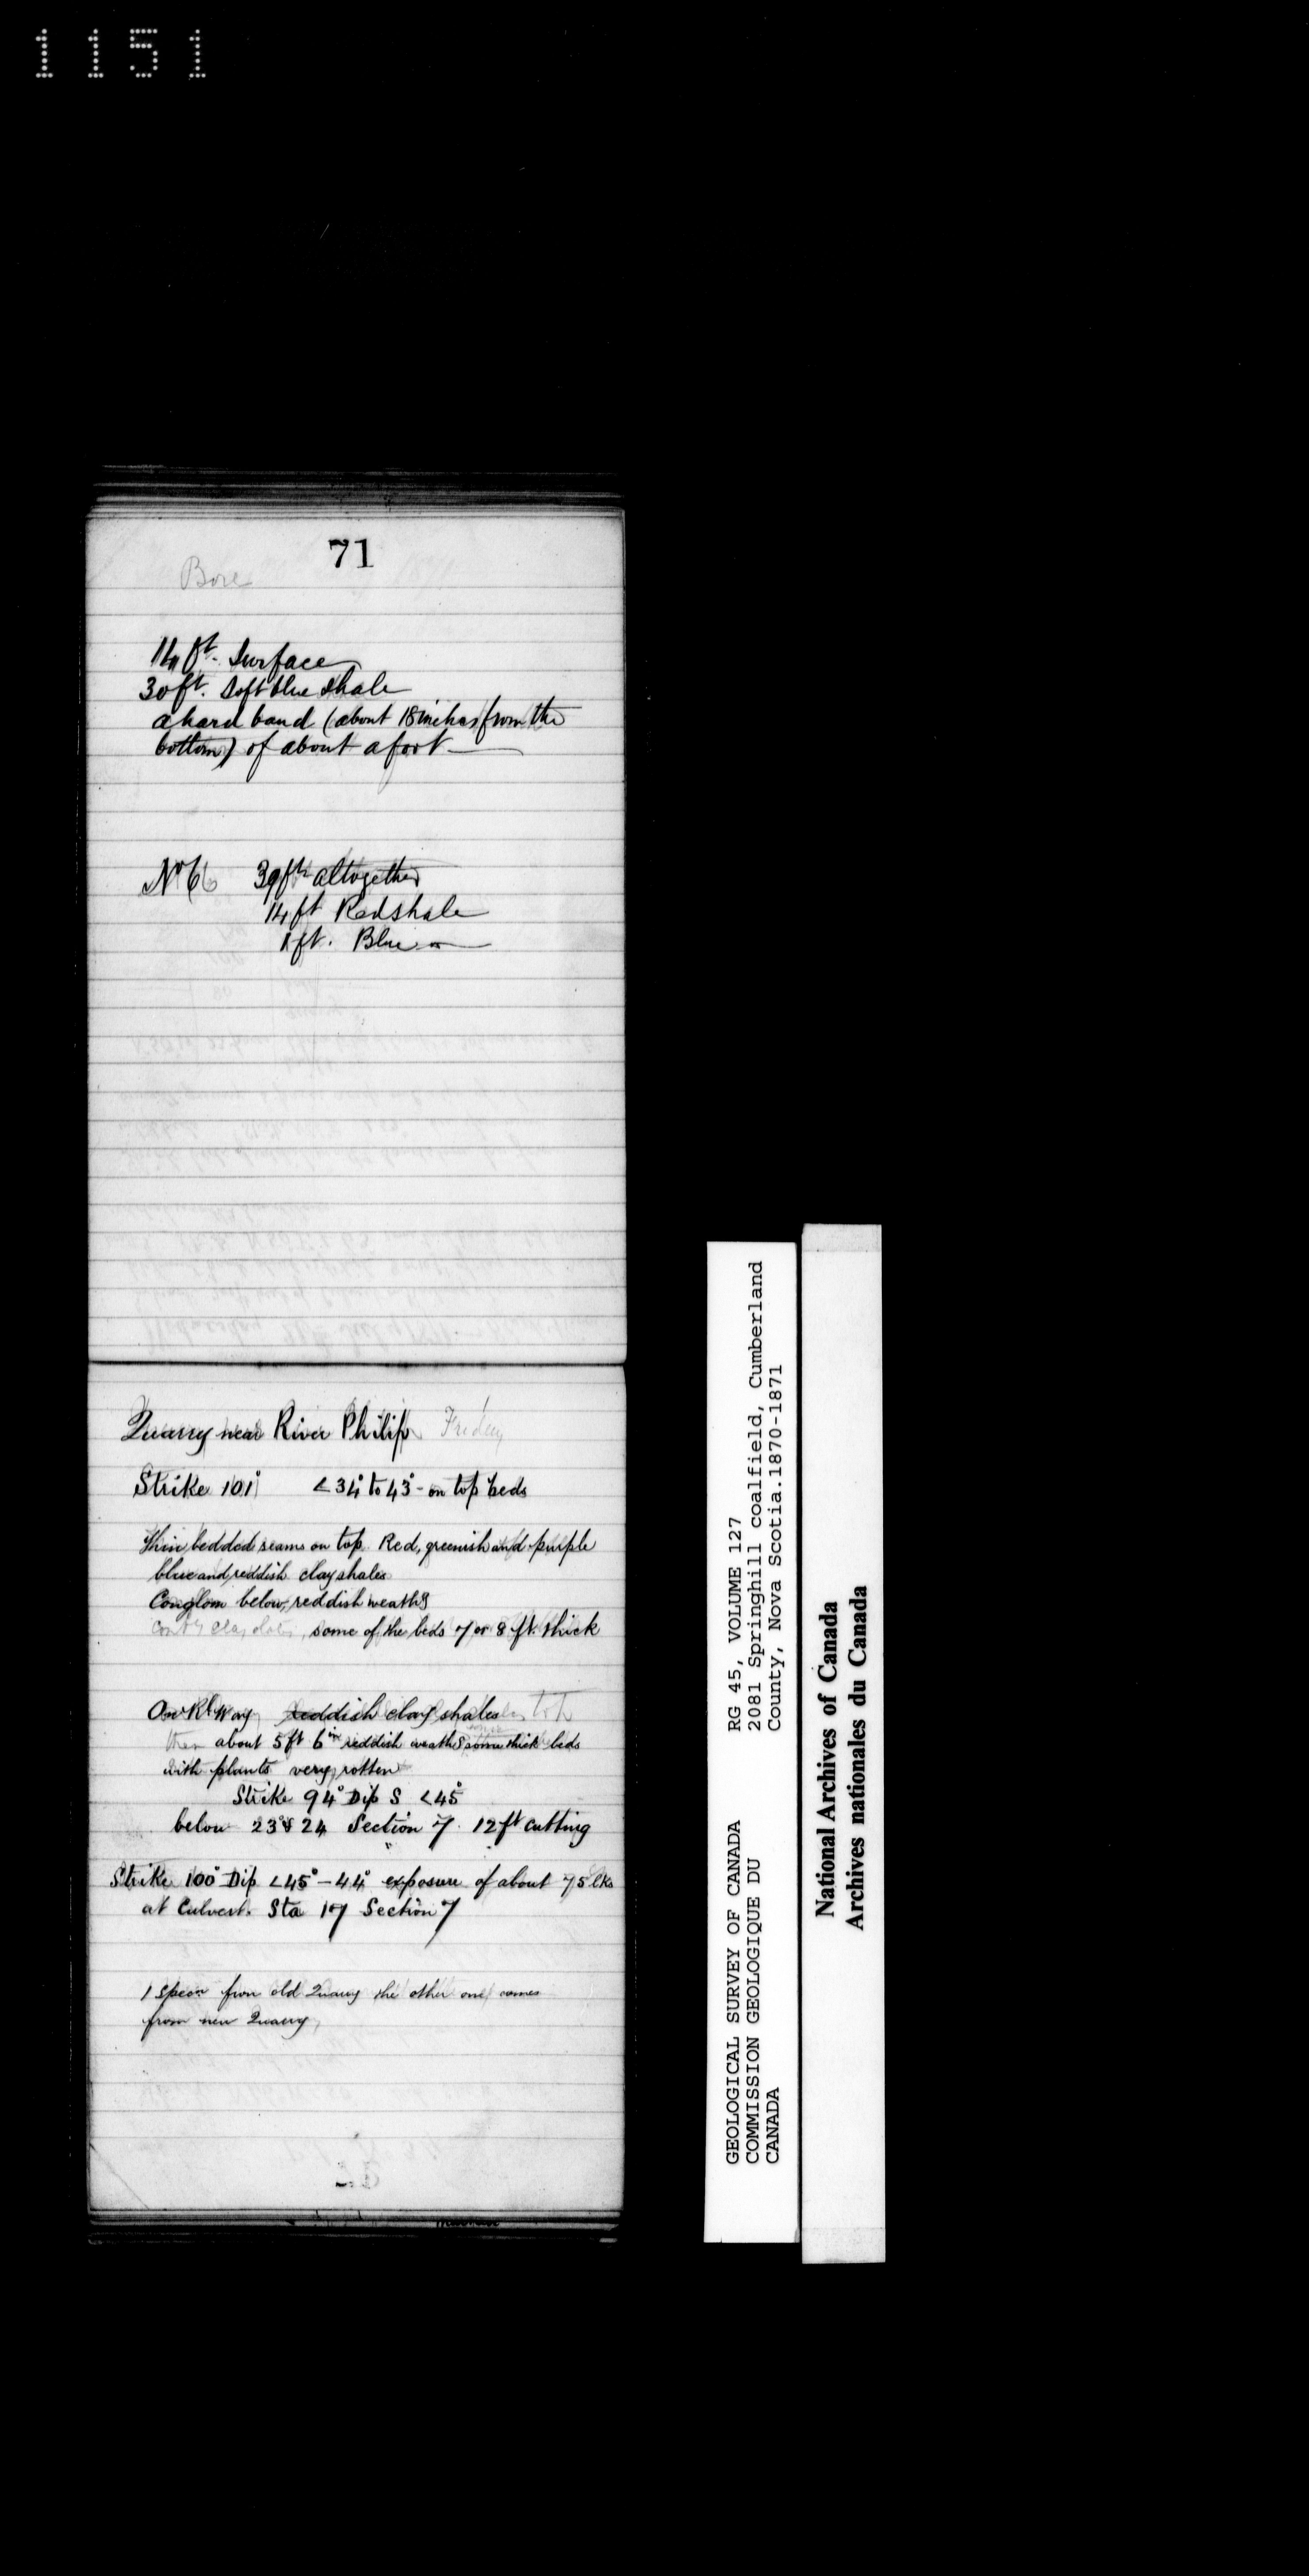 1151
71
Bore
14 ft. Surface
30 ft. Soft blue shale
a hard band (about 18 inches from the
bottom) of about a foot
No 6 39 ft altogether
14 ft Red shale
1 ft. Blue
Quarry near River Philip Friday
Strike 101° <34° to 43° - on top beds
Thin bedded seams on top. Red, greenish and purple
blue and reddish clay shales
Conglom below, reddish weathg
some of the beds 7 or 8 ft. thick
On Rl Way reddish clay shales
then about 5 ft 6 in reddish weathg some thick beds
with plants very rotten
Strike 94° Dip S <45°
below 23 & 24 Section 7. 12 ft cutting
Strike 100° Dip <45° - 44° exposure of about 75 lks
at Culvert. Sta 17 Section 7
1 specn from old Quarry the other one comes
from new Quarry
GEOLOGICAL SURVEY OF CANADA RG 45, VOLUME 127
COMMISSION GEOLOGIQUE DU 2081 Springhill coalfield, Cumberland
CANADA County, Nova Scotia.1870-1871
National Archives of Canada
Archives nationales du Canada